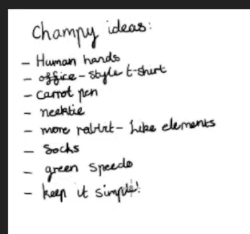 Champy ideas:
- Human hands
- office-style t-shirt
- carrot pen
- necktie
- more rabbit-like elements
- Socks
- green speedo
- keep it simple!